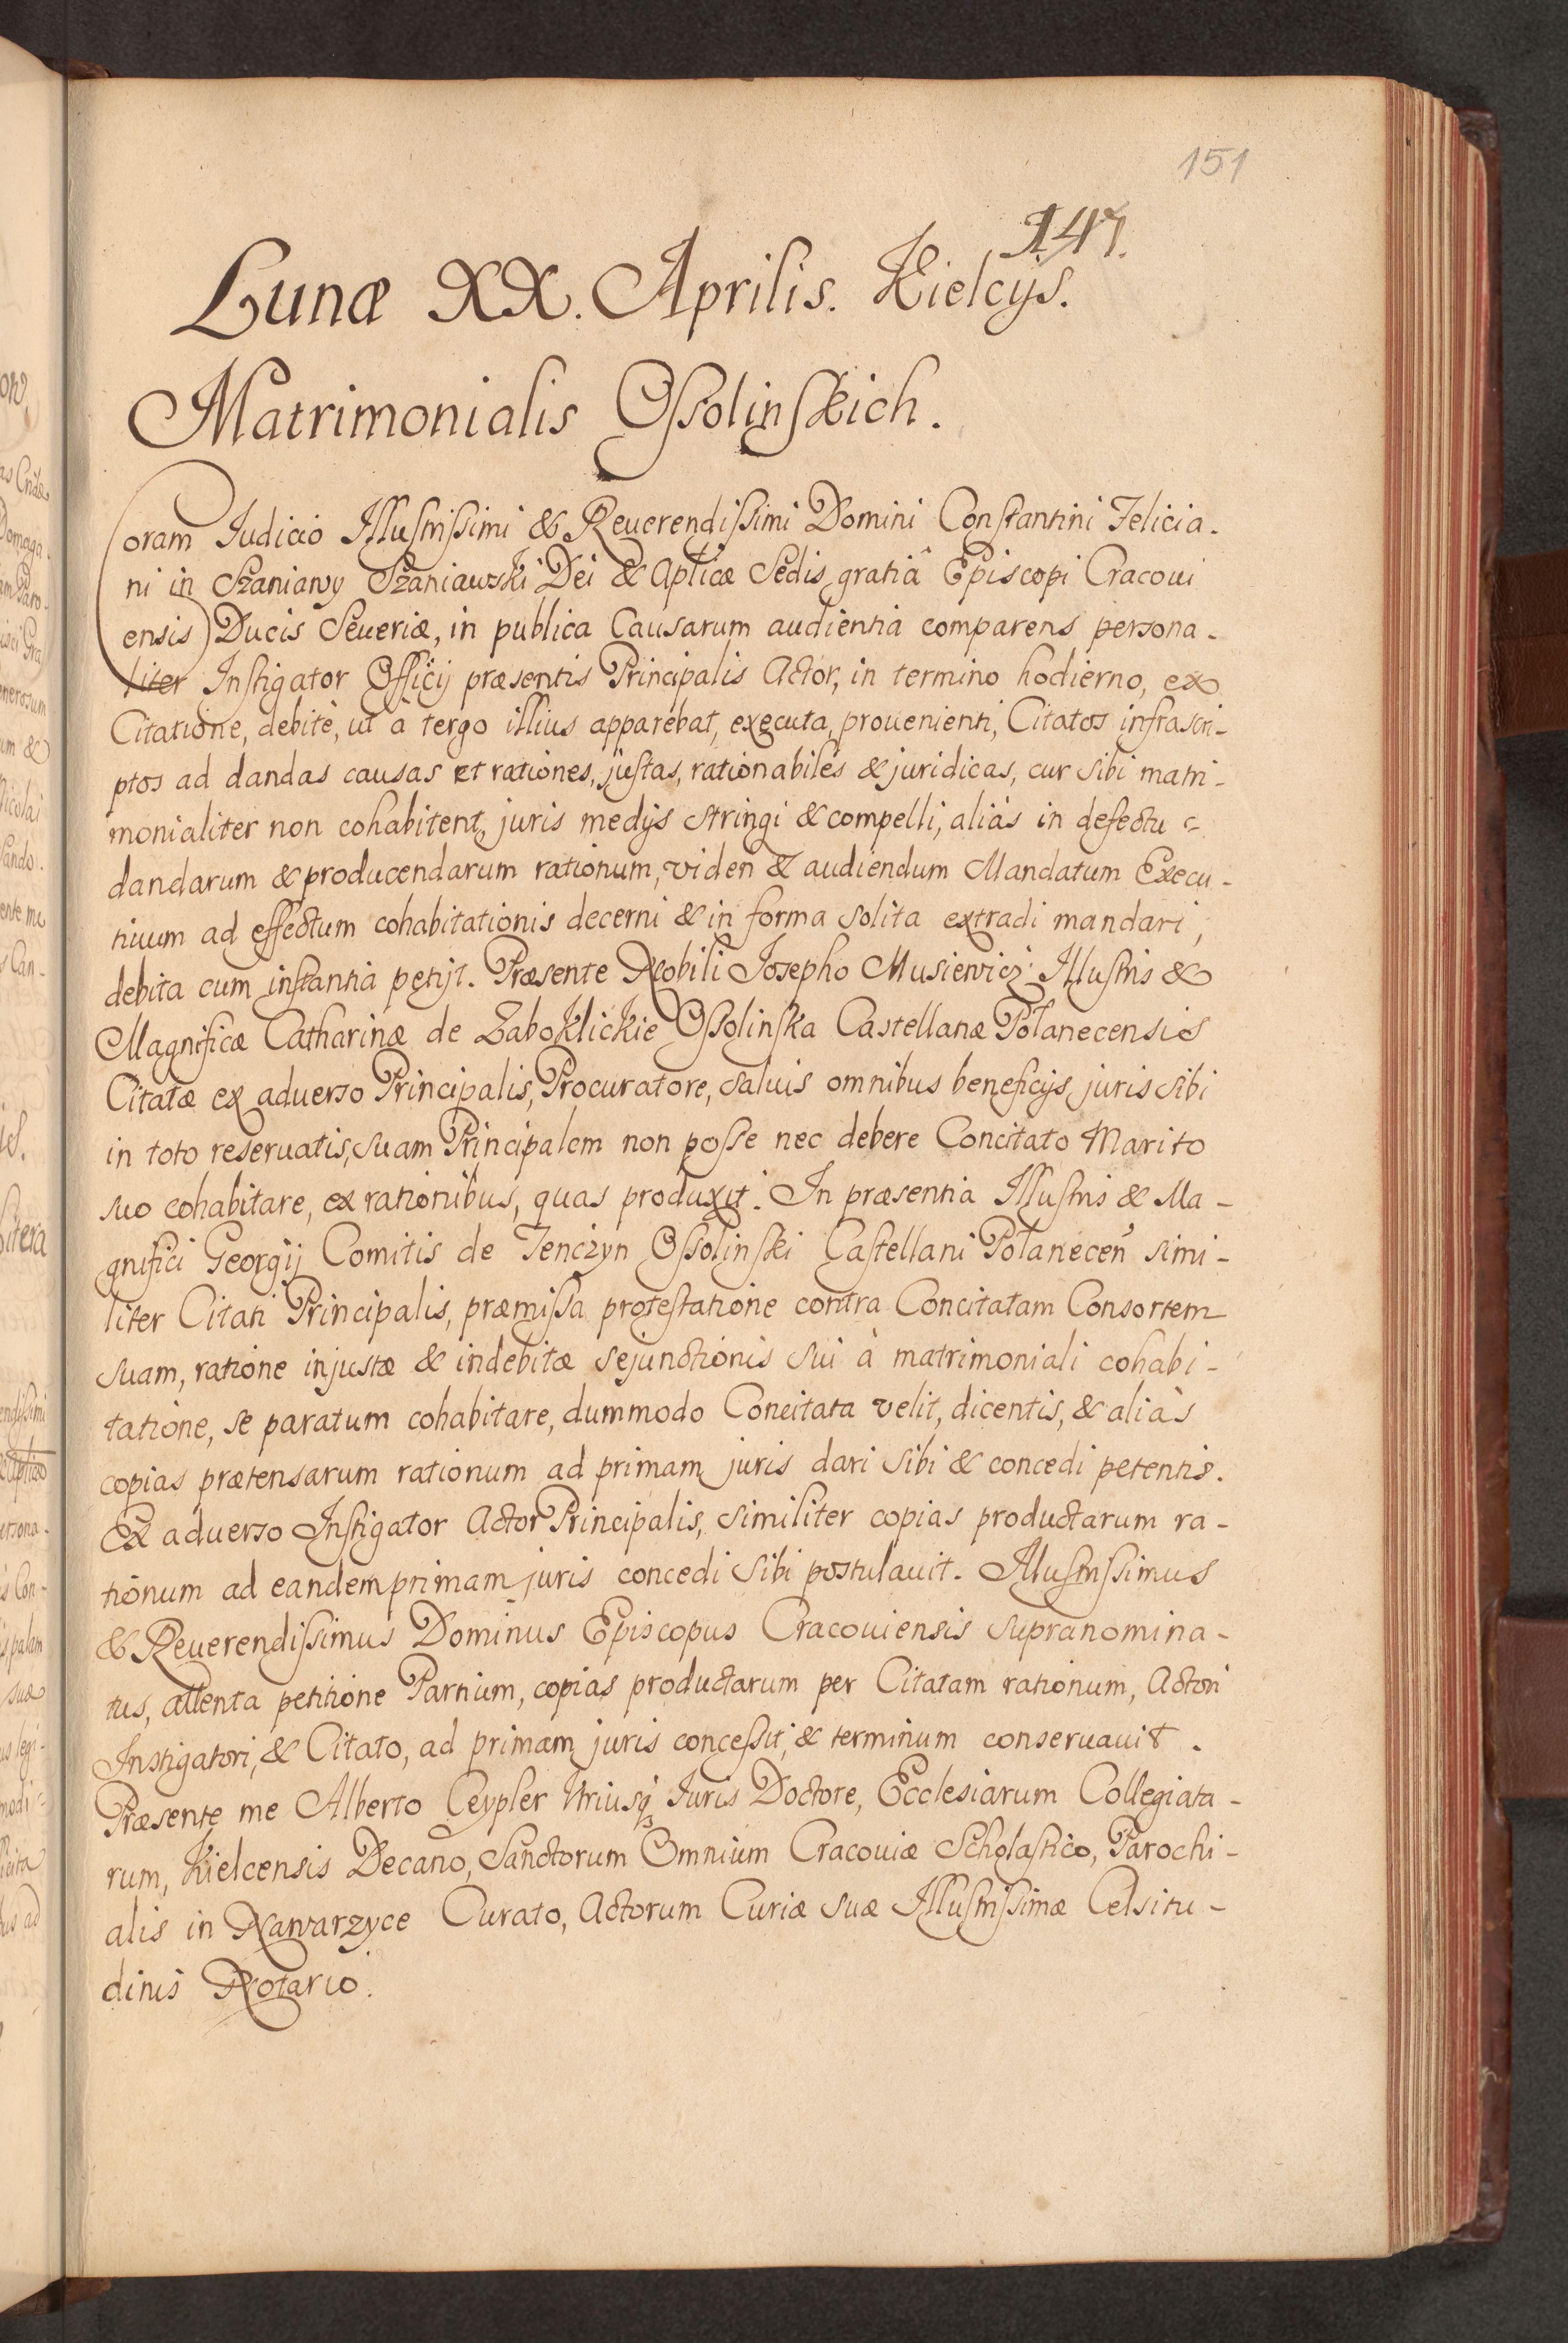 151
147.
Lunæ XX. Aprilis. Kielcijs.
Matrimonialis Ossolinskich.
Coram Iudicio Illustrissimi & Reuerendissimi Domini Constantini Felicia-
ni in Szaniawy Szaniawski Dei & Aplicæ Sedis gratiâ Episcopi Cracoui
ensis Ducis Seueriæ, in publica Causarum audientia comparens persona-
liter Instigator Officij præsentis Principalis Actor, in termino hodierno, ex
Citatione, debitè, ut à tergo illius apparebat, executa, prouenienti, Citatos infrascri-
ptos ad dandas causas et rationes, justas, rationabiles & juridicas, cur sibi matri-
monialiter non cohabitent, juris medijs stringi & compelli, aliàs in defectu
dandarum & producendarum rationum, videri & audiendum Mandatum Execu-
tiuum ad effectum cohabitationis decerni & in forma solita extradi mandari,
debita cum instantia petijt. Præsente Nobili Josepho Musiewicz Illustris &
Magnificæ Catharinæ de Zaboklickie Ossolinska Castellanæ Połanecensis
Citatæ ex aduerso Principalis, Procuratore, saluis omnibus beneficijs juris sibi
in toto reseruatis, suam Principalem non posse nec debere Concitato Marito
suo cohabitare, ex rationibus, quas produxit. In præsentia Illustris & Ma-
gnifici Georgij Comitis de Tenczyn Ossolinski Castellani Połanecen simi-
liter Citati Principalis, præmissa protestatione contra Concitatam Consortem
suam, ratione injustæ & indebitæ sejunctionis sui à matrimoniali cohabi-
tatione, se paratum cohabitare, dummodo Concitata velit, dicentis, & aliàs
copias prætensarum rationum ad primam juris dari sibi & concedi petentis.
Ex aduerso Instigator Actor Principalis, similiter copias productarum ra-
tionum ad eandem primam juris concedi sibi postulauit. Illustrissimus
& Reuerendissimus Dominus Episcopus Cracouiensis supranomina-
tus, attenta petitione Partium, copias productarum per Citatam rationum, Actori
Instigatori, & Citato, ad primam juris concessit, & terminum conseruauit.
Præsente me Alberto Ceypler Utriusq Iuris Doctore, Ecclesiarum Collegiata-
rum, Kielcensis Decano, Sanctorum Omnium Cracouiæ Scholastico, Parochi-
alis in Nawarzyce Curato, Actorum Curiæ suæ Illustrissimæ Celsitu-
dinis Notario.